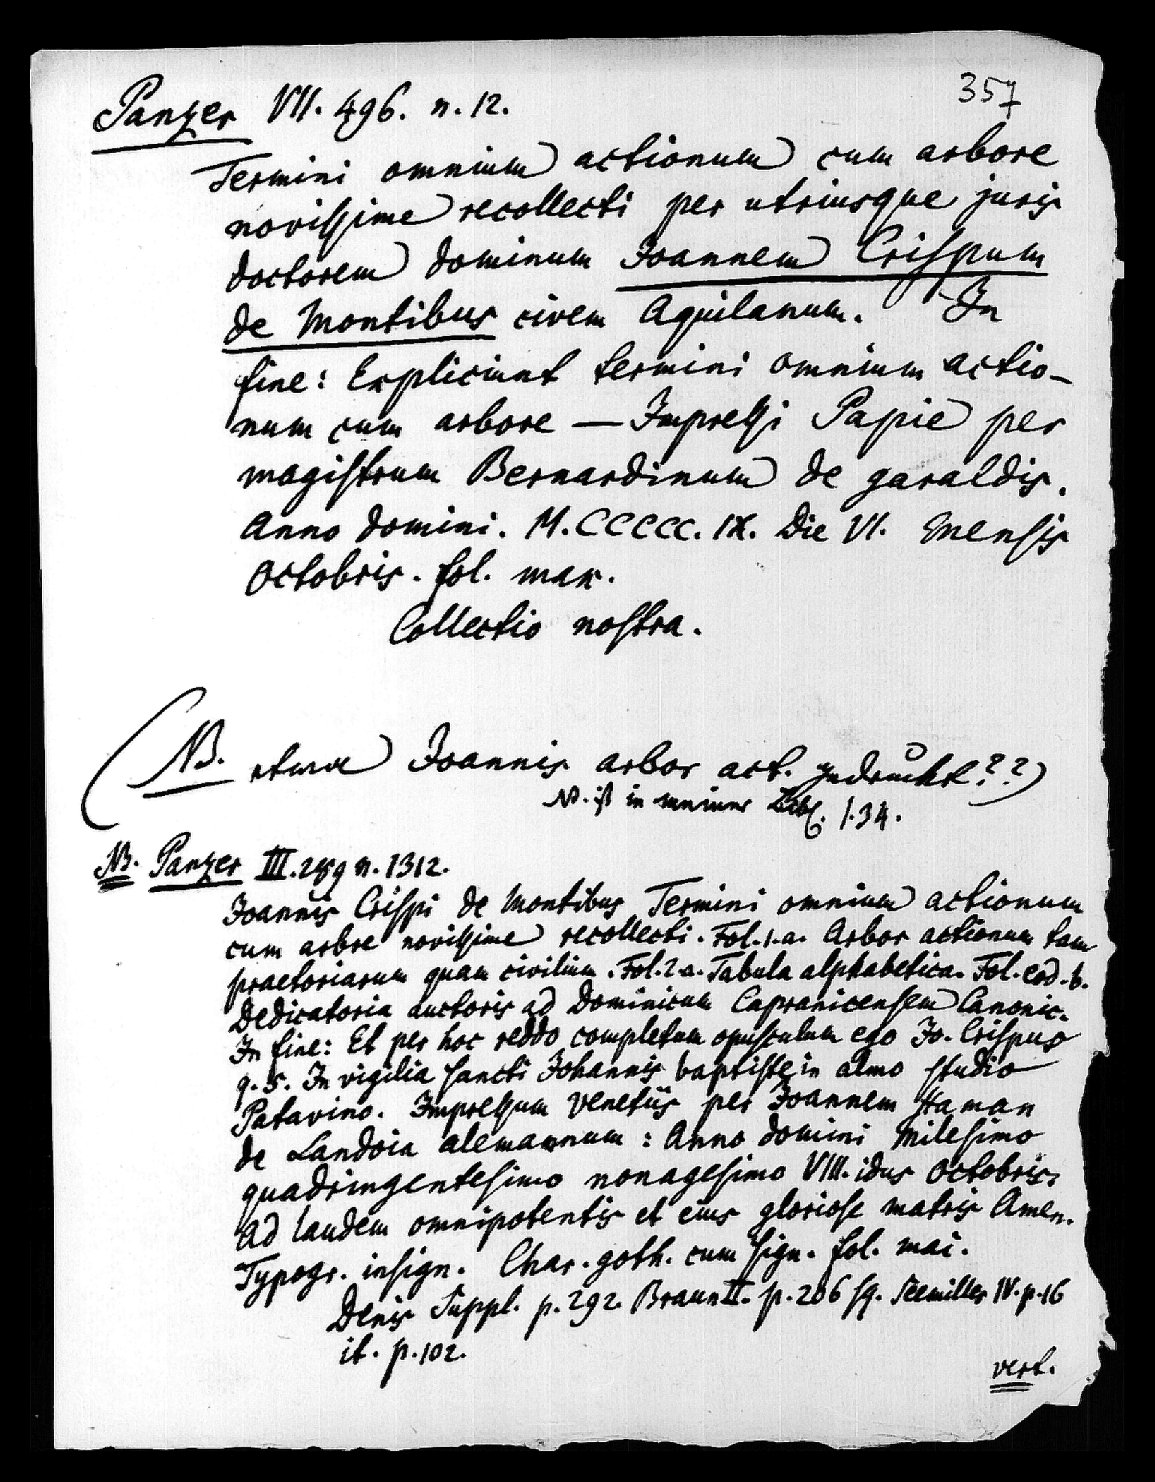 357
Panzer VII. 496. n. 12.
Termini omnium actionum cum arbore
novissime recollecti per utriusque juris
doctorem dominum Joannem Crispum
de Montibus civem Aquilanum. In
fine: Expliciunt termini omnium actio-
num cum arbore — Impressi Papie per
magistrum Bernardinum de garaldis.
Anno domini. M.CCCCC.IX. Die VI. Mensis
Octobris. fol. max.
Collectio nostra.
(NB. etwa Joannis arbor act. gedruckt??)
NB. ist in meiner 1.34.
NB. Panzer III. 289 n. 1312.
Joannis Crispi de Montibus Termini omnium actionum
cum arbre novissime recollecti. Fol. 1. a. Arbor actionum tam
praetoriarum quam civilium. Fol. 2 a. Tabula alphabetica. Fol. eod. b.
Dedicatoria auctoris ad Dominicum Capranicensem Canonic.
In fine: Et per hoc reddo completum opusculum ego Jo. Crispus
q. s. In vigilia sancti Johannis baptiste in almo studio
Patavino. Impressum Venetiis per Joannem Haman
de Landoia alemannum: Anno domini Milesimo
quadringentesimo nonagesimo VIII. idus Octobris.
Ad laudem omnipotentis et eius gloriose matris Amen.
Typogr. insign. Char. goth. cum sign. fol. mai.
Denis Suppl. p. 292. Braun II. p. 206 sq. Seemiller IV. p. 16
it. p. 102.
vert.